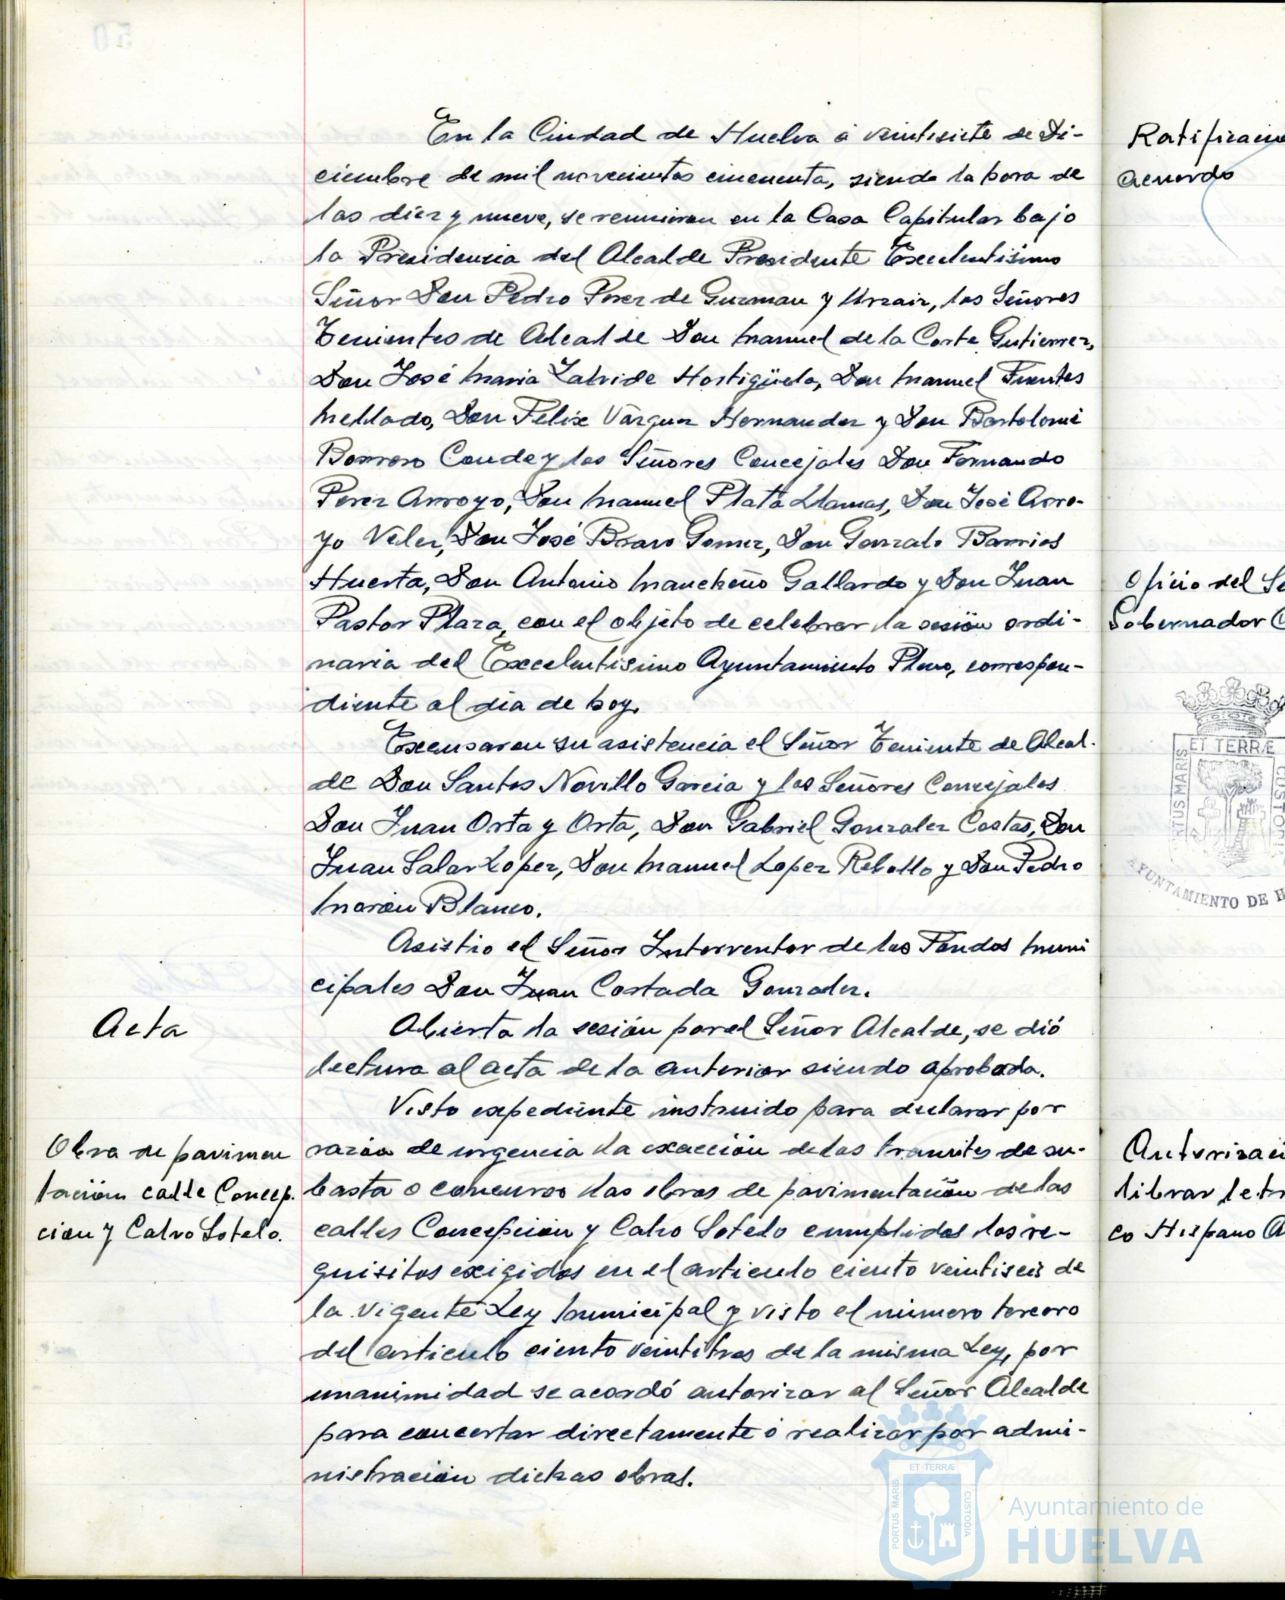 En la Ciudad de Huelva á veintisiete de Di-
ciembre de mil novecientos cincuenta, siendo la hora de
las diez y nueve, se reunieron en la Casa Capitular bajo
la Presidencia del Alcalde Presidente Excelentísimo
Señor Don Pedro Perez de Guzman y Urzaiz, los Señores
Tenientes de Alcalde Don Manuel de la Corte Gutierrez,
Don José Maria Zalvide Hortigüela, Don Manuel Fuentes
Mellado, Don Félix Vázquez Hernandez y Don Bartolomé
Borrero Conde y los Señores Concejales Don Fernando
Perez Arroyo, Don Manuel Plata Llamas, Don José Arro-
yo Velez, Don José Bravo Gomez, Don Gonzalo Barrios
Huerta, Don Antonio Mancheño Gallardo y Don Juan
Pastor Plaza, con el objeto de celebrar la sesión ordi-
naria del Excelentisimo Ayuntamiento Pleno, correspon-
diente al dia de hoy.
Excusaron su asistencia el Señor Teniente de Alcal-
de Don Santos Novillo Garcia y los Señores Concejales
Don Juan Orta y Orta, Don Gabriel Gonzalez Costas, Don
Juan Salas Lopez, Don Manuel Lopez Rebollo y Don Pedro
Moron Blanco.
Asistio el Señor Interventor de los Fondos Muni
cipales Don Juan Costada Gonzalez.
Acta
Abierta la sesión por el Señor Alcalde, se dió
lectura al acta de la anterior siendo aprobada.
Obra de pavimen
tación calle Concep.
cion y Calvo Sotelo.
Visto expediente instruido para declarar por
razón de urgencia la exacción de los tramites de su-
basta o concurso las obras de pavimentación de las
calles Concepción y Calvo Sotelo cumplidos los re-
quisitos exigidos en el articulo ciento veintiseis de
la vigente Ley Municipal y visto el número tercero
del articulo ciento veintitres de la misma Ley, por
unanimidad se acordó autorizar al Señor Alcalde
para concertar directamente ó realizar por admi-
nistración dichas obras.
Ratificacio
acuerdo
Oficio del Se
Gobernador C
ET TERRÆ
PORTUS MARIS
CUSTODI
AYUNTAMIENTO DE H
Autorizaci
librar letr
co Hispano A
ET TERRÆ
PORTUS MARIS
CUSTODIA
Ayuntamiento de
HUELVA